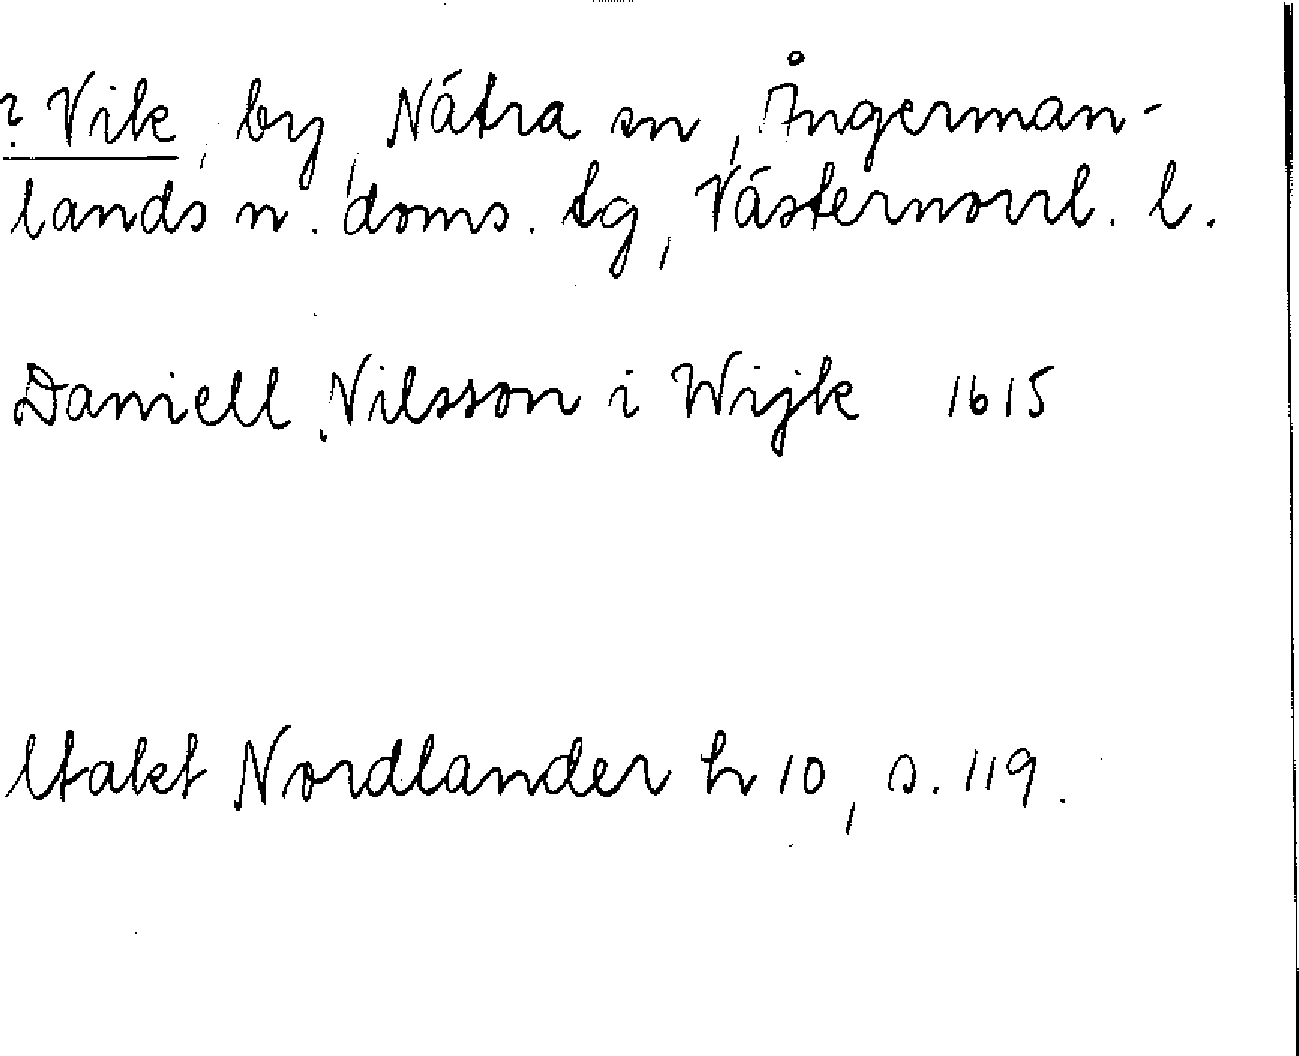 ? Vik, by, Nätra sn, Ångerman-
lands n. doms. tg, Västernorrl. l.
Daniell Nilsson i Wijk 1615
Utakt Nordlander h 10, s. 119.